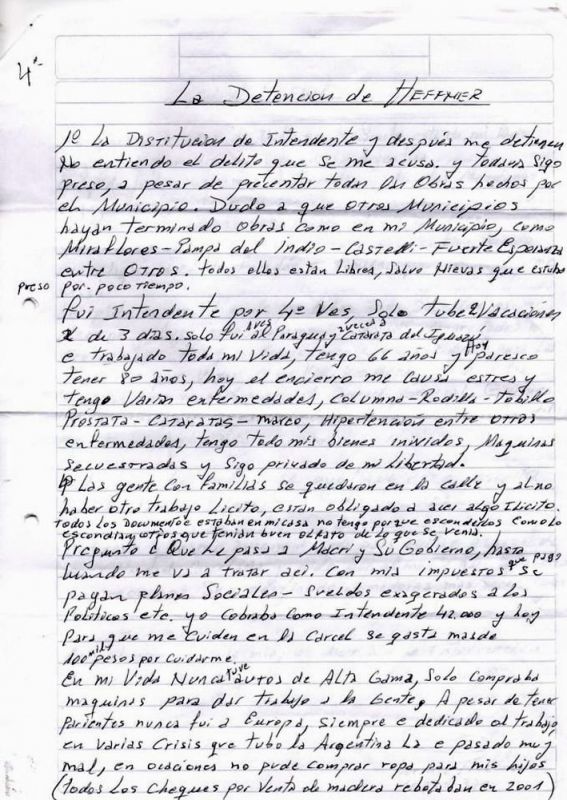 4ª
La Detencion de HEFFNER
1º La Distitucion de Intendente y después me detienen
No entiendo el delito que se me acusa. y todavia Sigo
preso, a pesar de precentar todas las Obras hechos por
el Municipio. Dudo a que Otros Municipios
hayan terminado Obras como en mi Municipio, como
Miraflores-Pampa del Indio-Castelli-Fuerte Esperanza
entre Otros. todos ellos estan Libres, Salvo Nievas que estubo
preso por poco tiempo.
Fui Intendente por 4º Ves, Solo tube 2 Vacaciones
de 3 dias. solo fui 2 ves al Paraguay 2 veces a Catarata del Iguazú
e trabajado toda mi Vida, tengo 66 años y Hoy paresco
tener 80 años, hoy el encierro me Causa estres y
tengo Varias enfermedades, Columna-Rodilla-Tobillo
Prostata-Cataratas-marco, Hipertencion entre otros
enfermedades, tengo todo mis bienes inividos, Maquinas
Secuestradas y Sigo privado de mi Libertad.
Las gente Con familias se quedaron en la calle y al no
haber otro trabajo Licito, estan obligado a acer algo Ilicito.
todos los Documentos estaban en mi casa no tengo porque esconderlos como lo
escondian otros que tenian buen olfato de lo que se Venia.
Pregunto ¿ Que Le pasa a Macri y Su Gobierno, hasta
cuando me va a tratar aci. Con mis impuestos que pago se
pagan planes Sociales-Sueldos exagerados a los
Politicos etc. yo Cobraba Como Intendente 42.000 y hoy
Para que me Cuiden en la Carcel se gasta mas de
100 mil pesos por Cuidarme.
En mi Vida Nunca tuve autos de Alta Gama, Solo Compraba
maquinas para dar trabajo a la Gente, A pesar de tener
Parientes nunca fui a Europa, Siempre e dedicado al trabajo,
en Varias Crisis que tubo la Argentina La e pasado muy
mal, en ocaciones no pude Comprar ropa para mis hijos
(todos Los Cheques por Venta de madera rebotaban en 2001)